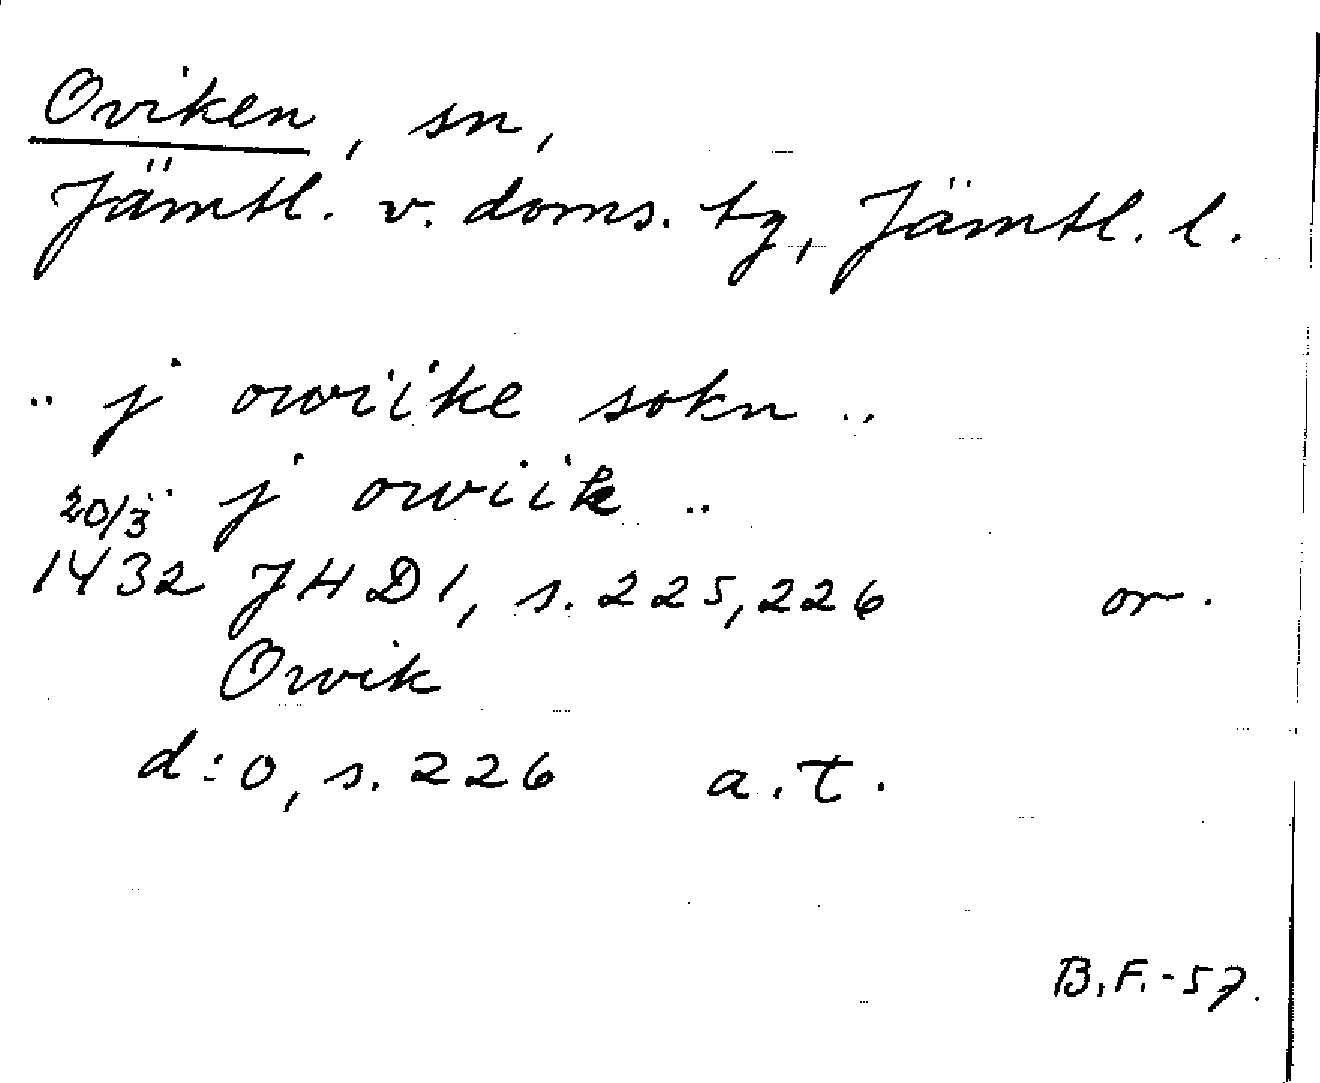 Oviken, sn,
Jämtl. v. doms. tg, Jämtl. l.
.. j owiike sokn ..
.. j owiik ..
20/3
1432 JHD1, s. 225, 226 or.
Owik
d:o, s. 226 a.t.
B.F.-57.